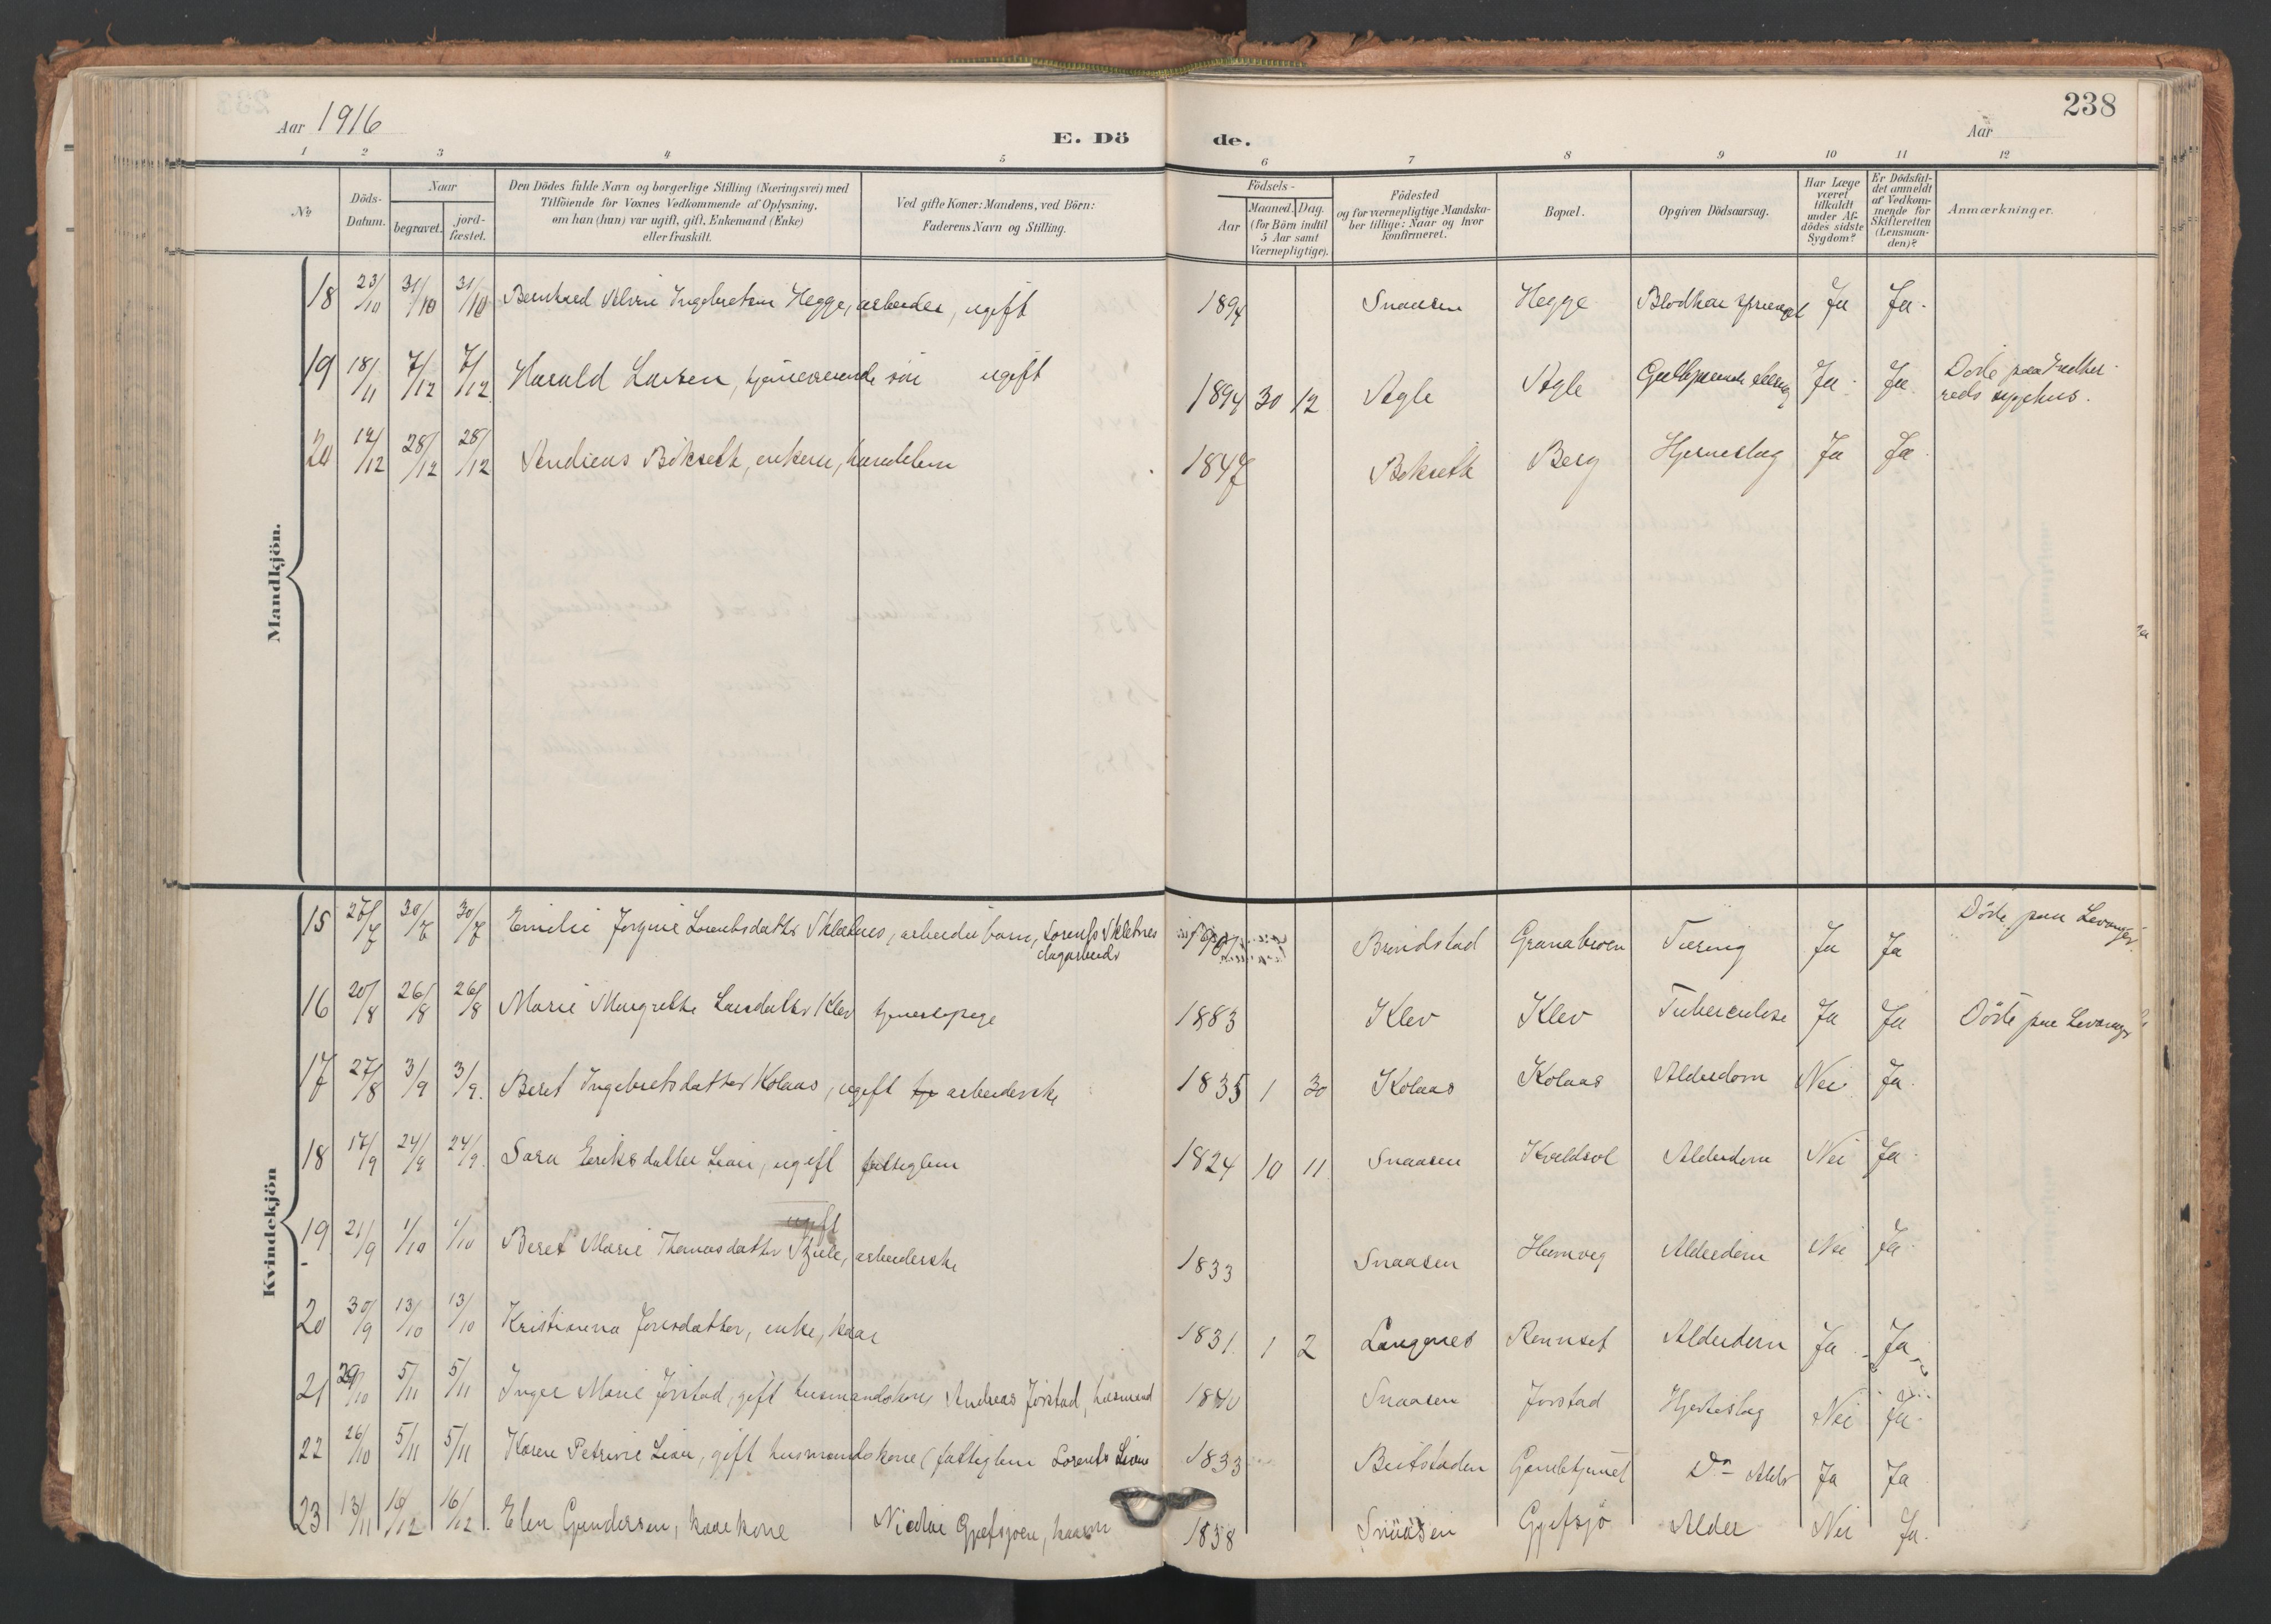 238
Aar 1916
E. Dö de.
Aar
1 2 3 4 5 6 7 8 9 10 11 12
No
Döds-Datum.
Naar
begravet.
jord-fæstet.
Den Dödes fulde Navn og borgerlige Stilling (Næringsvei) med
Tilföiende for Voxnes Vedkommende af Oplysning,
om han (hun) var ugift, gift, Enkemand (Enke)
eller fraskilt.
Ved gifte Koner: Mandens, ved Börn:
Faderens Navn og Stilling.
Födsels-
Aar
Maaned. Dag.
(for Börn indtil
5 Aar samt
Værnepligtige).
Födested
og for værnepligtige Mandska-
ber tillige: Naar og hvor
konfirmeret.
Bopæl.
Opgiven Dödsaarsag.
Har Læge
været
tilkaldt
under Af-
dödes sidste
Sygdom?
Er Dödsfal-
det anmeldt
af Vedkom-
mende for
Skifteretten
(Lensman-
den)?
Anmærkninger.
Mandkjön.
18 23/10 31/10 31/10 Ingebretsen Hegge, arbeider, ugift 1894 Snaasen Hegge Ja Ja.
19 18/11 7/12 7/12 Harald Larsen, hjemmeværende sön ugift 1894 30 12 Agle Agle Ja. Ja. Döde paa
sygehus.
20 14/12 28/12 28/12 Andreas Bökseth, enkem, 1847 Bökseth Berg Hjerneslag Ja Ja.
Kvindekjön
15 27/7 30/7 30/7 Emilie Jorgine Lorentsdatter Skletnes, arbeiderbarn, Lorents Skletnes
dagarbeidr Granabroen Tæring Ja Ja Döde paa Levanger.
16 20/8 26/8 26/8 Marie Margrethe Larsdatter Klev tjenestepige 1883 Klev Klev Tuberculose Ja Ja Döde paa Levanger
17 27/8 3/9 3/9. Beret Ingebretsdatter Kolaas, ugift arbeiderske 1835 1 30 Kolaas Kolaas Alderdom Nei Ja.
18 17/9 24/9 24/9. Sara Eriksdatter Lian, ugift fattiglem 1824 10 11 Snaasen Alderdom Nei Ja.
ugift
19. 21/9 1/10 1/10 Beret Marie Thomasdatter arbeiderske 1833 Snaasen Alderdom Nei Ja.
20 30/9 13/10 13/10 Kristianna Jonsdatter, enke, kaar 1831. 1 2 Langnes Rennset Alderdom Ja. Ja
21 29/10 5/11 5/11 Inger Marie Jörstad, gift husmandskone Andreas Jörstad, husmand Snaasen Jörstad Hjerteslag Nei Ja.
22 26/10 5/11 5/11 Karen Petrine Lian, gift husmandskone (fattiglem Lorents Lian 1833 Beitstaden Do Alder Ja Ja
23 13/11 16/12 16/12. Elen Gundersen, kaarkone Nicolai Gjefsjöen, 1838 Snaasen Gjefsjö Alder Nei Ja.